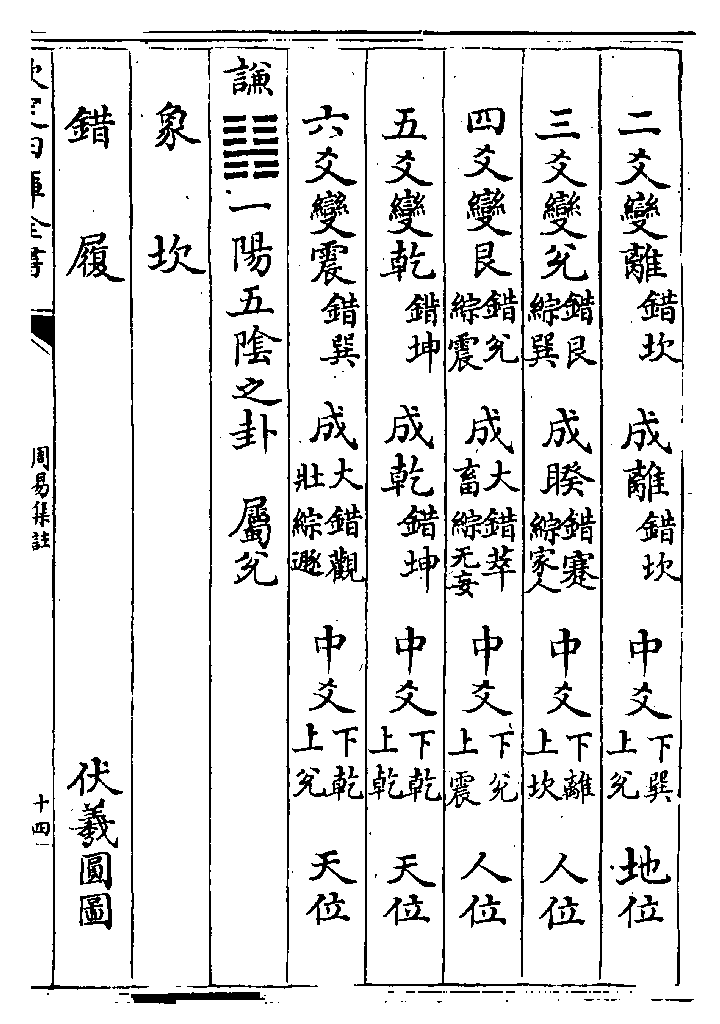 二爻變離錯坎 成離錯坎 中爻下巽上兌 地位
三爻變兌錯艮綜巽 成睽錯蹇綜家人 中爻下離上坎 人位
四爻變艮錯兌綜震 成大畜錯萃綜无妄 中爻下兌上震 人位
五爻變乾錯坤 成乾錯坤 中爻下乾上乾 天位
六爻變震錯巽 成大壯錯觀綜遯 中爻下乾上兌 天位
謙䷎一陽五陰之卦 屬兌
象 坎
錯 履 伏羲圓圖
欽定四庫全書 周易集註 十四